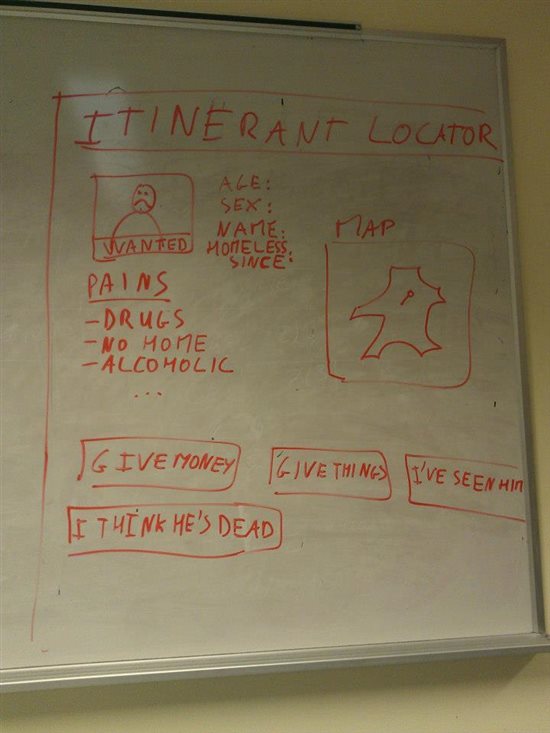 ITINERANT LOCATOR
AGE:
SEX:
NAME:
HOMELESS
SINCE:
WANTED
MAP
PAINS
-DRUGS
-NO HOME
-ALCOHOLIC
...
GIVE MONEY
GIVE THINGS
I'VE SEEN HIM
I THINK HE'S DEAD